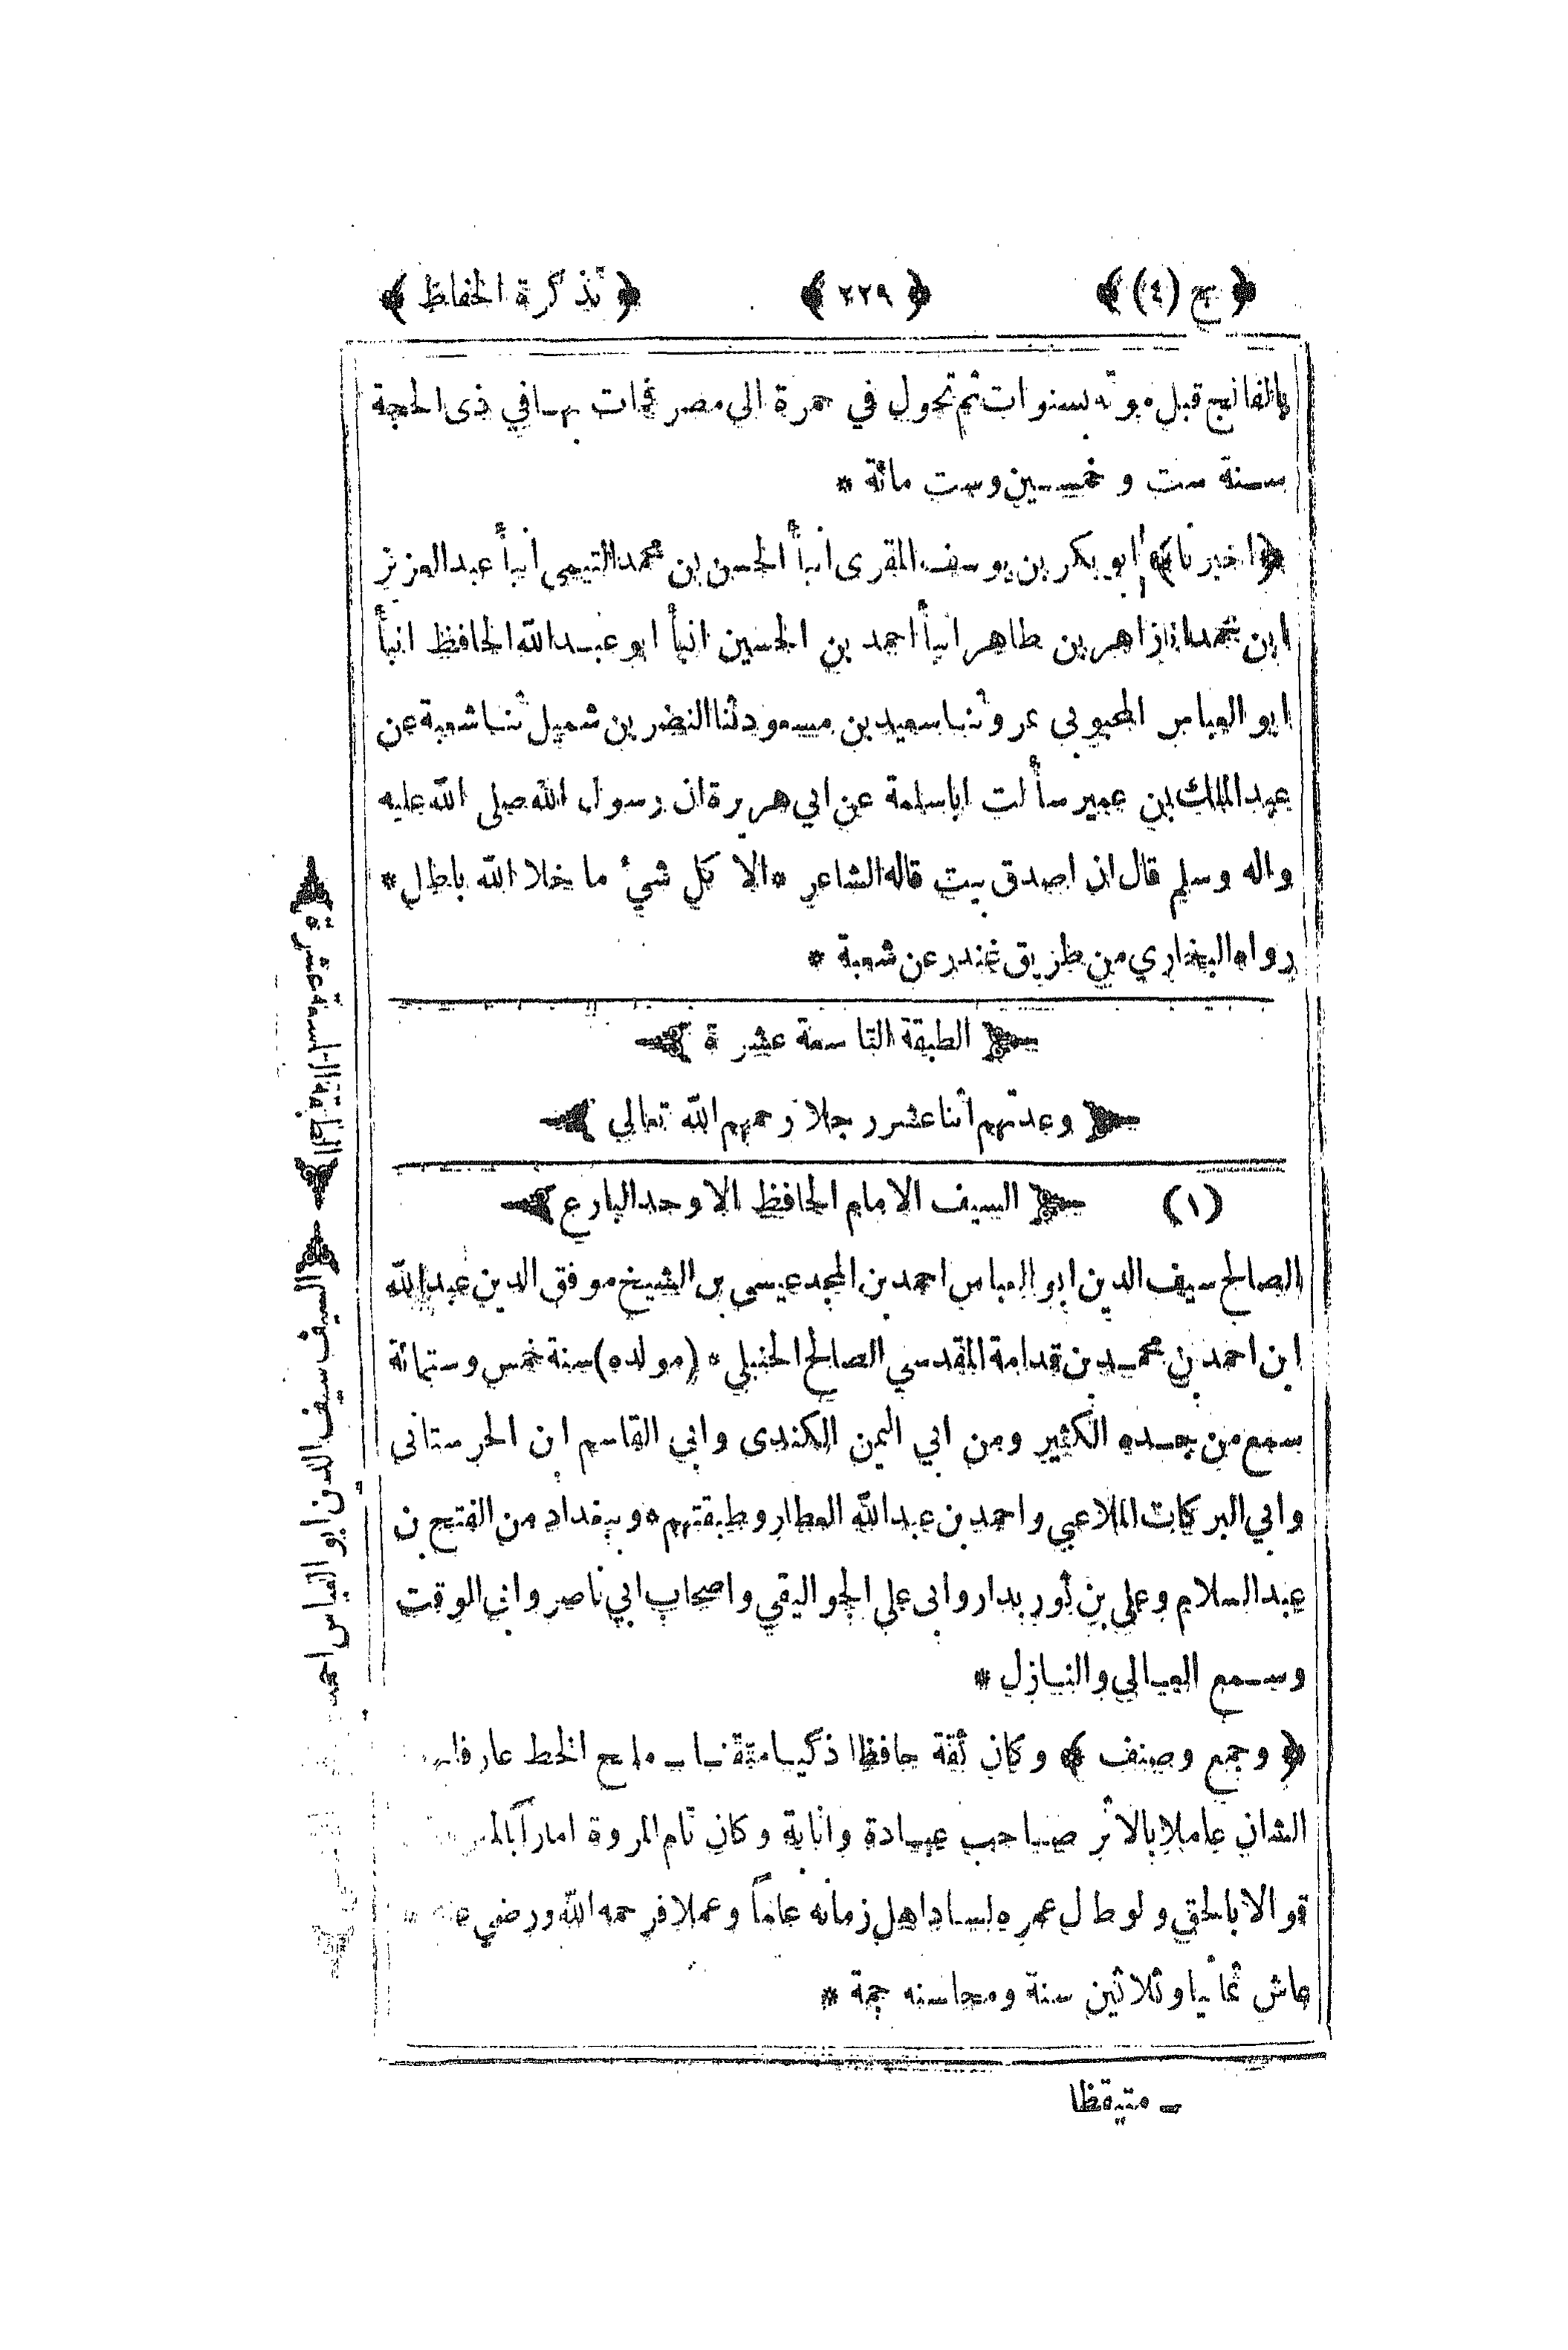 ﴿ ج (٤) ﴾ ﴿ ٢٢٩ ﴾ ﴿ تذكرة الحفاظ ﴾
بالفالج قبل موته بسنوات ثم تحول في حمرة الى مصر فمات بها في ذى الحجة
سنة ست و خمسين وست مائة *
﴿ اخبرنا ﴾ ابو بكر بن يوسف المقرى انبأ الحسن بن محمد التيمى انبأ عبد العزيز
ابن محمد انا زاهر بن طاهر انبأ احمد بن الحسين انبأ ابو عبد الله الحافظ انبأ
ابو العباس المحبوبى بمرو ثنا سعيد بن مسعود ثنا النضر بن شميل ثنا شعبة عن
عبد الملك بن عمير سألت ابا سلمة عن ابي هريرة ان رسول الله صلى الله عليه
واله وسلم قال ان اصدق بيت قاله الشاعر * الا كل شيء ما خلا الله باطل *
رواه البخاري من طريق غندر عن شعبة *
﴿ الطبقة التاسعة عشرة ﴾
﴿ وعدتهم اثنا عشر رجلا رحمهم الله تعالى ﴾
(١) ﴿ السيف الامام الحافظ الاوحد البارع ﴾
الصالح سيف الدين ابو العباس احمد بن المجد عيسى بن الشيخ موفق الدين عبد الله
ابن احمد بن محمد بن قدامة المقدسي الصالح الحنبلي * (مولده) سنة خمس وستمائة
سمع من جده الكثير ومن ابي اليمن الكندى وابي القاسم ابن الحرستانى
وابي البركات الملاعبي واحمد بن عبد الله العطار وطبقتهم * وببغداد من الفتح بن
عبد السلام وعلى بن نور بدار وابى على الجواليقي واصحاب ابي ناصر وابى الوقت
وسمع العالي والنازل *
﴿ وجمع وصنف ﴾ وكان ثقة حافظا ذكيا متقنا ـ مليح الخط عارفا
الشان عاملا بالاثر صاحب عبادة وانابة وكان تام المروة امارا
قوالا بالحق ولو طال عمره لساد اهل زمانه علما وعملا فرحمه الله ورضي عنه *
عاش ثمانيا وثلاثين سنة ومحاسنه جمة *
ـ متيقظا
﴿ الطبقة التاسعة عشرة ﴾ ﴿ السيف سيف الدين ابو العباس احمد